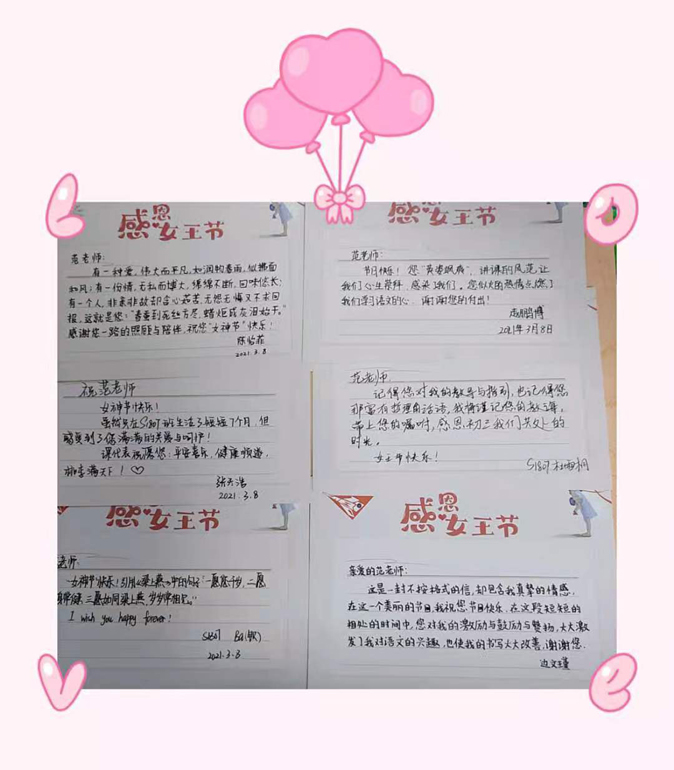 L
O
V
e
感恩女王节
范老师:
有一种爱，伟大而平凡，如润物春雨，似拂面
和风；有一份情，无私而博大，绵绵不断，回味悠长；
有一个人，非亲非故却含心茹苦，无怨无悔又不求回
报，这就是您！“春蚕到死丝方尽，蜡炬成灰泪始干。”
感谢您一路的照顾与陪伴，祝您“女神节”快乐！
2021.3.8
感恩女王节
范老师:
节日快乐！您
讲课的风范让
我们心生崇拜，感染我们。您似火的热情点燃了
我们学习语文的心，谢谢您的付出！
2021年3月8日
祝范老师
女神节快乐！
虽然只在S1801班生活了短短7个月，但
感受到了您满满的关爱与呵护！
课代表祝愿您：平安喜乐，健康顺遂，
桃李满天下！♡
2021.3.8
范老师
记得您对我的教导与指引，也记得您
那富有哲理的话语，我将谨记您的教诲，
带上您的嘱咐，感恩初三我们共处的
时光。
女王节快乐！
S1801 杜雨桐
感恩女王节
老师:
女神节快乐！引用
中的句子“一愿
千岁，二愿
三愿如同梁上燕，岁岁常相见。”
I wish you happy forever!
S1801
2021.3.8
感恩女王节
亲爱的范老师:
这是一封不按格式的信，却包含我真挚的情感，
在这一个美丽的节日，我祝您节日快乐，在这段短短的
相处的时间中，您对我的激励与鼓励与赞扬，大大激
发了我对语文的兴趣，也使我的书写大大改善，谢谢您.